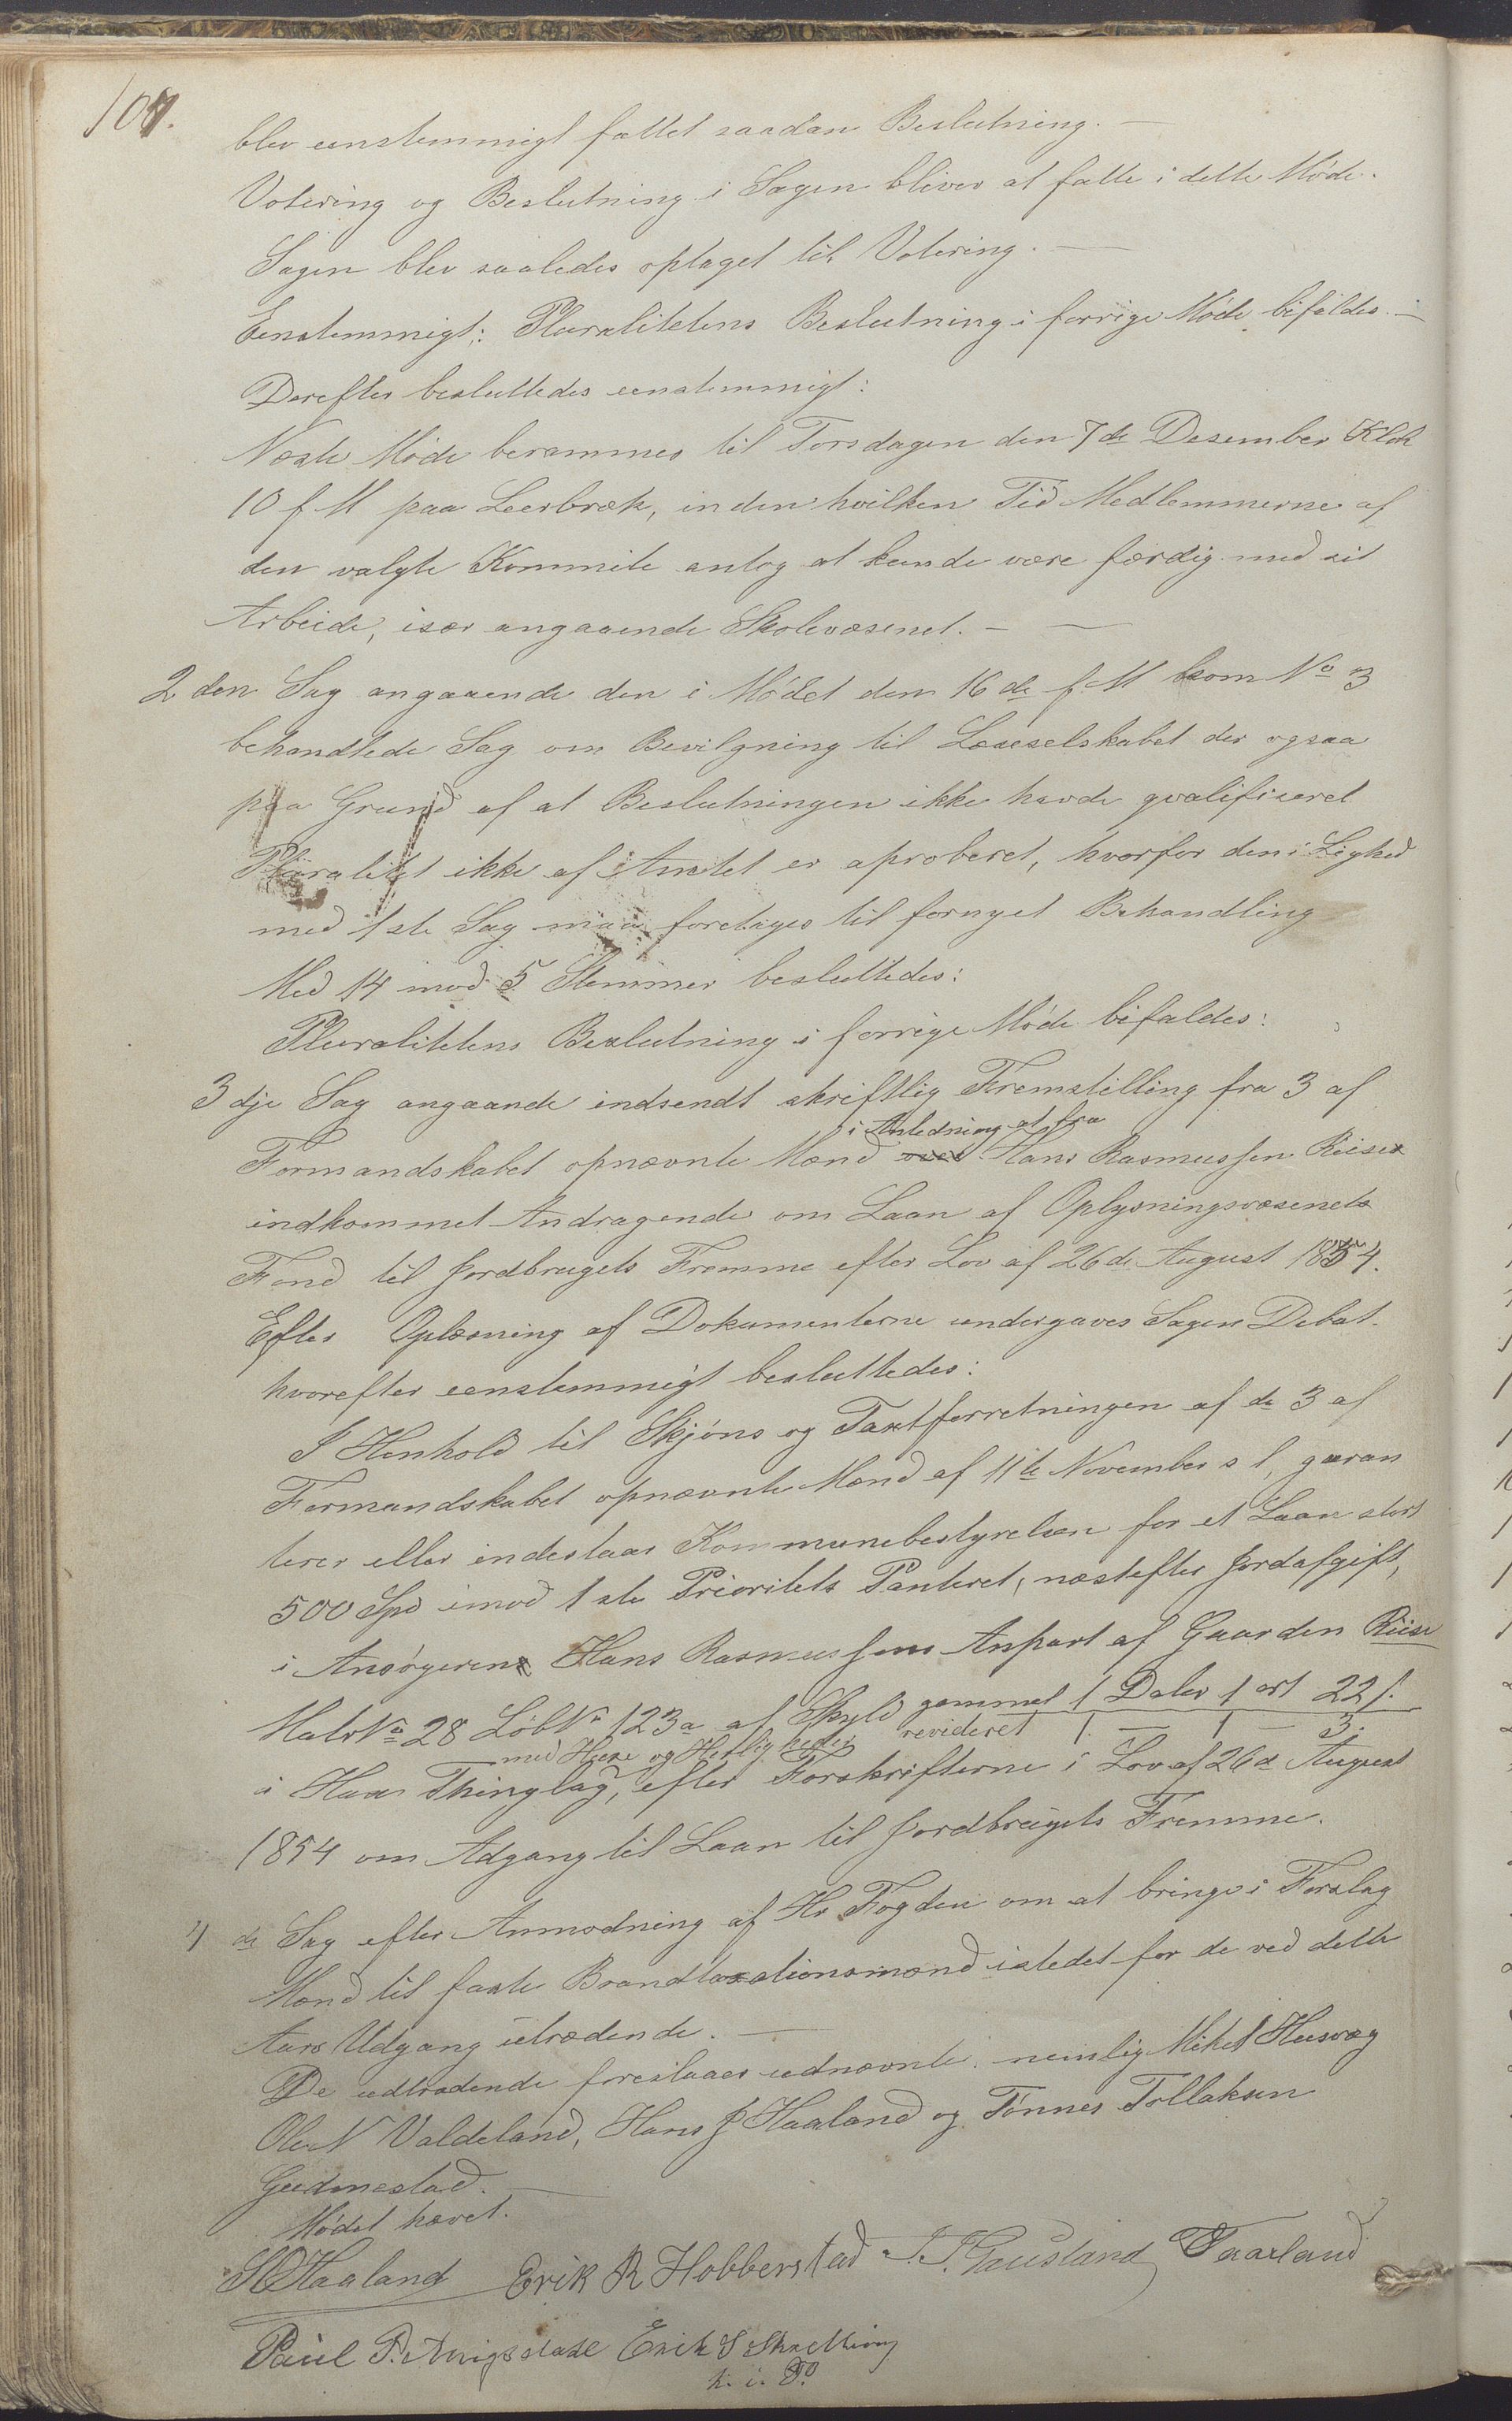 107.
blev eenstemmigt fattet saadan Beslutning. —
Votering og Beslutning i Sagen bliver at fatte i dette Møde.
Sagen blev saaledes optaget til Votering. —
Eenstemmigt: Pluralitetens Beslutning i forrige Møde bifaldes. —
Derefter besluttedes eenstemmigt:
Næste Møde berammes til Torsdagen den 7de Desember Klok
10 f M paa Leerbræk, inden hvilken Tid Medlemmerne af
den valgte Kommite antog at kunde være færdig med sit
Arbeide, især angaaende Skolevæsenet. —
2 den Sag angaaende den i Mødet den 16de f M som No 3
behandlede Sag om Bevilgning til Læseselskabet der ogsaa
paa Grund af at Beslutningen ikke havde qvalifiseret
Pluralitet ikke af Amtet er aproberet, hvorfor den i Lighed
med 1ste Sag maa foretages til fornyet Behandling
Med 14 mod 5 Stemmer besluttedes:
Pluralitetens Beslutning i forrige Møde bifaldes:
3 dje Sag angaaende indsendt skriftlig Fremstilling fra 3 af
i Anledning at fra
Formandskabet opnævnte Mænd Hans Rasmussen Riise
indkommet Andragende om Laan af Oplysningsvæsenets
Fond til Jordbrugets Fremme efter Lov af 26de August 1854.
Efter Oplæsning af Dokumenterne undergaves Sagen Debat
hvorefter eenstemmigt besluttedes:
I Henhold til Skjøns og Taxtforretningen af de 3 af
Formandskabet opnævnte Mænd af 11te November s l, garan
terer eller indestaar Kommunebestyrelsen for et Laan stort
500 Spd imod 1ste Prioritets Panteret, næstefter Jordafgift,
i Ansøgeren Hans Rasmussens Anpart af Gaarden Riise
Matr No 28 Løb No 123a af Skyld gammel 1 Daler 1 ort 22 ſ.
revideret 1 — 1 — 3.
med Huse og Herligheder
i Haa Thinglag, efter Forskrifterne i Lov af 26de August
1854 om Adgang til Laan til Jordbrugets Fremme.
4 de Sag efter Anmodning af Hr Fogden om at bringe i Forslag
Mænd til faste Brandtaxationsmænd istedet for de ved dette
Aars Udgang utrædende. —
De udtrædende foreslaaes udnævnte, nemlig Mikel Husvæg
Ole N Valdeland, Hans J Haaland og Tønnes Tollaksen
Gudmestad. —
Mødet hævet.
S O Haaland Erik R Hobberstad J. T. Gausland Taarland
Paul P. Erik S Skretting
k. i. P.